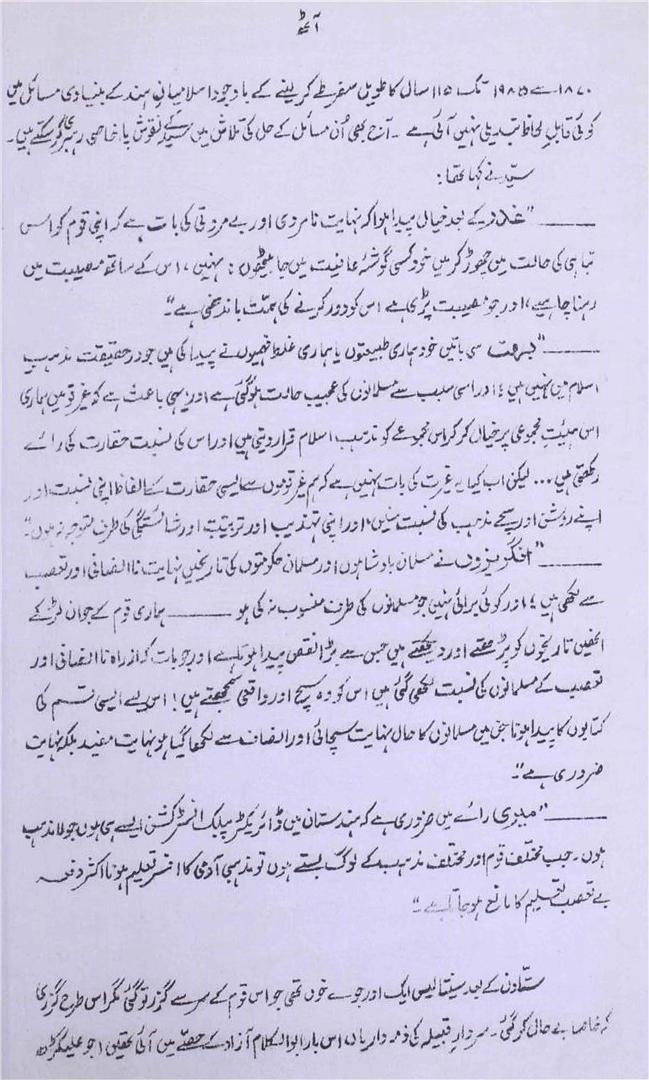 آٹھ
۱۸۷۰ سے ۱۹۸۵ تک ۱۱۵ سال کا طویل سفر طے کر لینے کے باوجود اسلامیانِ ہند کے بنیادی مسائل میں
کوئی قابلِ لحاظ تبدیلی نہیں آئی ہے ۔ آج بھی اُن مسائل کے حل کی تلاش میں سیّد کے نقوشِ پا خاصی رہبری کر سکتے ہیں ۔
سیّد نے کہا تھا :
ــــــ "غدر کے بعد خیال پیدا ہوا کہ نہایت نامردی اور بے مروتی کی بات ہے کہ اپنی قوم کو اس
تباہی کی حالت میں چھوڑ کر میں خود کسی گوشۂ عافیت میں جا بیٹھوں : نہیں ، اس کے ساتھ مصیبت میں
رہنا چاہیے ، اور جو مصیبت پڑی ہے اس کو دور کرنے کی ہمت باندھنی ہے"
ــــــ "بہت سی باتیں خود ہماری طبیعتوں یا ہماری غلط فہمیوں نے پیدا کی ہیں جو در حقیقت مذہب
اسلام میں نہیں ہیں ؛ اور اسی سبب سے مسلمانوں کی عجیب حالت ہو گئی ہے اور یہی باعث ہے کہ غیر قومیں ہماری
اس ہیئتِ مجموعی پر خیال کر کر اس مجموعے کو مذہب اسلام قرار دیتی ہیں اور اس کی نسبت حقارت کی رائے
رکھتی ہیں ... لیکن اب کیا یہ غیرت کی بات نہیں ہے کہ ہم غیر قوموں سے ایسی حقارت کے الفاظ اپنی نسبت اور
اپنے روشن اور سچے مذہب کی نسبت سنیں ، اور اپنی تہذیب اور تربیت اور شائستگی کی طرف متوجہ نہ ہوں ۔"
ــــــ "انگریزوں نے مسلمان بادشاہوں اور مسلمان حکومتوں کی تاریخیں نہایت نا انصافی اور تعصب
سے لکھی ہیں ؛ اور کوئی برائی نہیں جو مسلمانوں کی طرف منسوب نہ کی ہو ــــــ ہماری قوم کے جوان لڑکے
انھیں تاریخوں کو پڑھتے اور دیکھتے ہیں جس سے بڑا نقص پیدا ہوتا ہے اور جو بات کہ از راہ نا انصافی اور
تعصب کے مسلمانوں کی نسبت لکھی گئی ہیں اس کو وہ سچ اور واقعی سمجھتے ہیں ! اس لیے ایسی قسم کی
کتابوں کا پیدا ہونا جن میں مسلمانوں کا حال نہایت سچائی اور انصاف سے لکھا گیا ہو نہایت مفید بلکہ نہایت
ضروری ہے" ۔
ــــــ "میری رائے میں ضروری ہے کہ ہندستان میں ڈائریکٹر پبلک انسٹرکشن ایسے ہی ہوں جو لا مذہب
ہوں ۔ جب مختلف قوم اور مختلف مذہب کے لوگ بستے ہوں تو مذہبی آدمی کا افسرِ تعلیم ہونا اکثر دفعہ
بے تعصب تعلیم کا مانع ہو جاتا ہے ۔"
ستّاون کے بعد سینتالیس ایک اور جوے خوں تھی جو اس قوم کے سر سے گزر تو گئی مگر اس طرح گزری
کہ خاصا بے حال کر گئی ۔ سردارِ قبیلہ کی ذمہ داریاں ، اس بار ابو الکلام آزاد کے حصّے میں آئی تھیں ، جو علیگڑھ